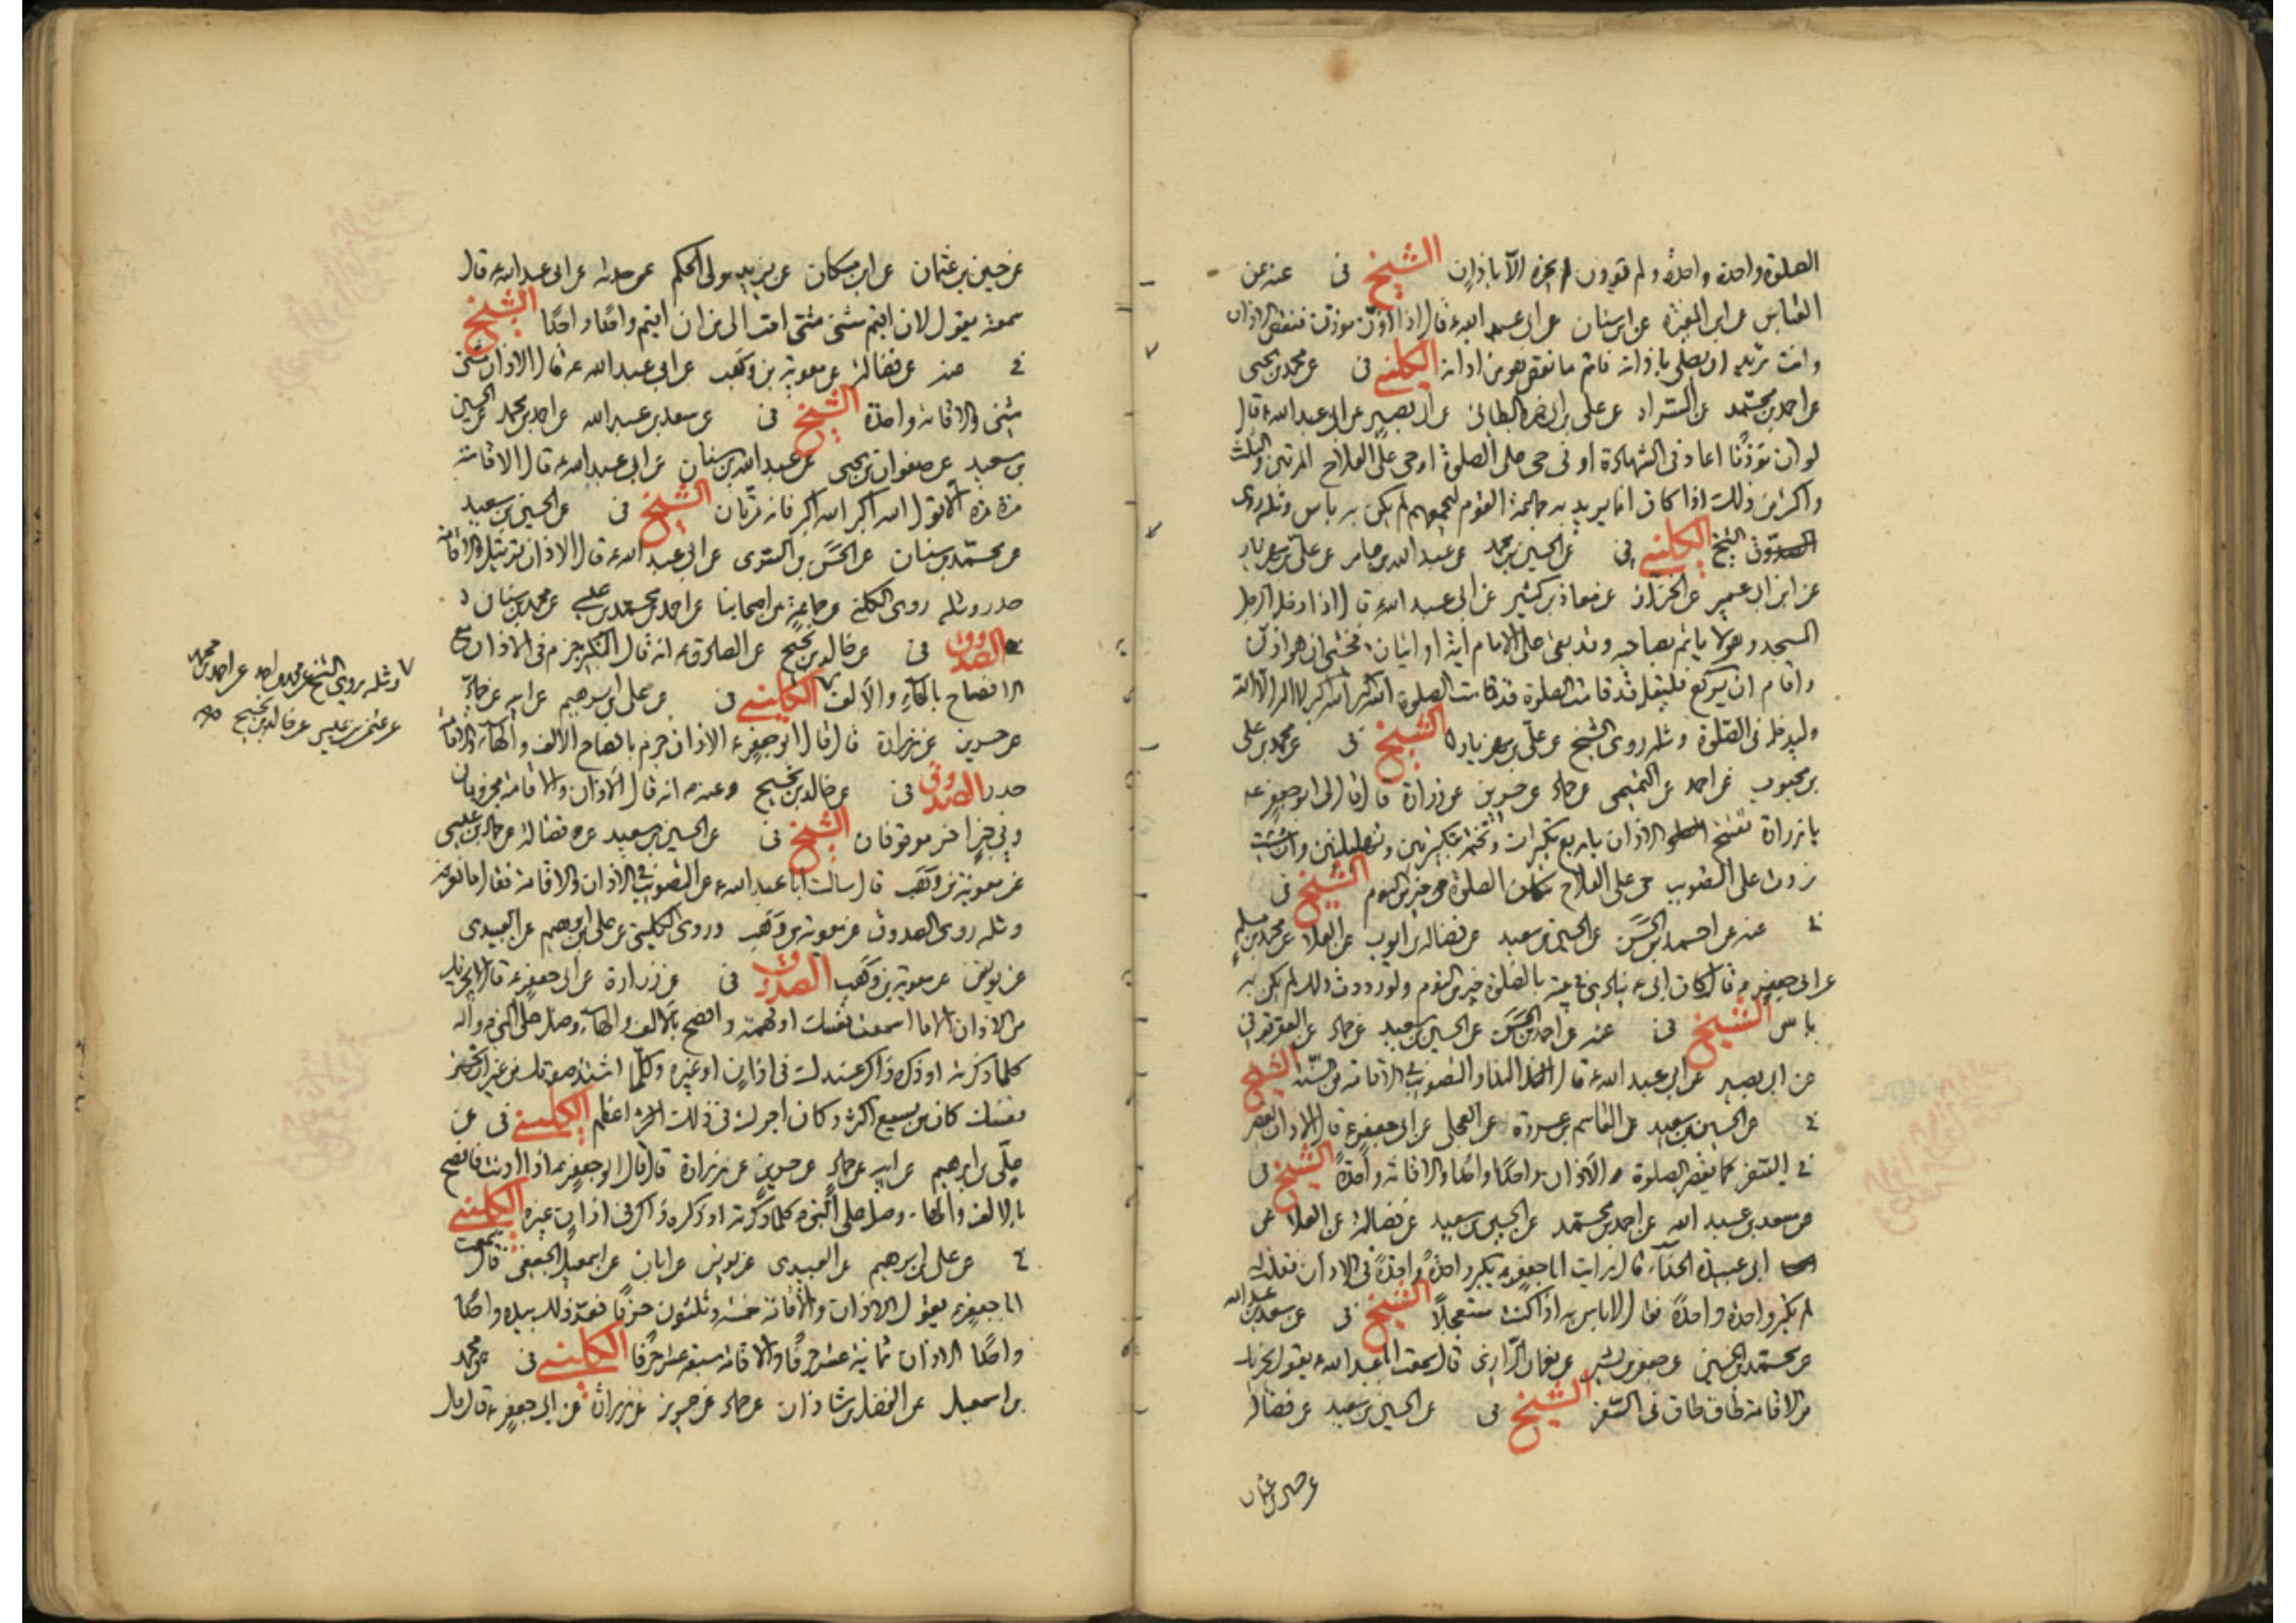 الصلوة واحدة واحدة ولم يجزه الا باذان الشيخ فى عنه عن
العباس عن ابن المغيرة عن ابن سنان عن ابى عبد الله ع قال اذا اذن موذن فنقص الاذان
وانت تريد ان تصلى باذانه فاتم ما نقص هو من اذانه الكلينى فى عن محمد بن يحيى
عن احمد بن محمد عن على بن ابى حمزة البطائنى عن ابى بصير عن ابى عبد الله ع قال
لو ان موذنا اعاد فى الشهادة او فى حى على الصلوة او حى على الفلاح المرتين والثلث
واكثر من ذلك اذا كان انما يريد به جماعة القوم ليجمعهم لم يكن به باس ومثله روى
الشيخ الكلينى فى عن الحسين بن محمد عن عبد الله بن عامر عن على بن مهزيار
عن ابن ابى عمير عن معاذ بن كثير عن ابى عبد الله ع قال اذا دخل الرجل
المسجد وهو لا ياتم بصاحبه وقد بقى على الامام اية او ايتان فخشى ان هو اذن
واقام ان يركع فليقل قد قامت الصلوة قد قامت الصلوة الله اكبر الله اكبر لا اله الا الله
وليدخل فى الصلوة ومثله روى الشيخ عن على بن مهزيار الشيخ فى عن محمد بن على
بن محبوب عن احمد عن التميمى عن حماد عن حريز عن زرارة قال قال لى ابو جعفر ع
يا زرارة تفتتح الاذان باربع تكبيرات وتختمه بتكبيرتين وتهليلتين وان شئت
زدت على التثويب حى على الفلاح مكان الصلوة خير من النوم الشيخ فى
عنه عن احمد بن الحسن عن الحسين بن سعيد عن فضالة بن ايوب عن العلا عن محمد بن مسلم
عن ابى جعفر ع قال كان ابى ع ينادى فى بيته بالصلوة خير من النوم ولو رددت ذلك لم يكن به
باس الشيخ فى عنه عن احمد بن الحسن عن الحسين بن سعيد عن حماد عن العقرقوفى
عن ابى بصير عن ابى عبد الله ع قال النداء والتثويب فى الاقامة من السنة الشيخ
عن الحسين بن سعيد عن القاسم بن عروة عن العجلى عن ابى جعفر ع قال الاذان يقصر
فى السفر كما يقصر الصلوة الاذان واحدا واحدا والاقامة واحدة الشيخ فى
عن سعد بن عبد الله عن احمد بن محمد عن الحسين بن سعيد عن فضالة عن العلا عن
ابى عبيدة الحذاء قال رايت ابا جعفر ع يكبر واحدة واحدة فى الاذان فقلت له
لم تكبر واحدة واحدة فقال لا باس به اذا كنت مستعجلا الشيخ فى عن سعد بن عبد الله
عن محمد بن الحسين عن جعفر بن بشير عن نعمان الرازى قال سمعت ابا عبد الله ع يقول يجزيك
من الاقامة طاق طاق فى السفر الشيخ فى عن الحسين بن سعيد عن فضالة
عن حسين بن عثمان
عن حسين بن عثمان عن ابن مسكان عن يزيد مولى الحكم عمن حدثه عن ابى عبد الله ع قال
سمعته يقول لان اقيم مثنى مثنى احب الى من ان اقيم واحدا واحدا الشيخ
فى عنه عن فضالة عن معوية بن وهب عن ابى عبد الله ع قال الاذان مثنى
مثنى والاقامة واحدة الشيخ فى عن سعد بن عبد الله عن احمد بن محمد عن الحسين
بن سعيد عن صفوان بن يحيى عن عبد الله بن سنان عن ابى عبد الله ع قال الاقامة
مرة مرة الا قول الله اكبر الله اكبر فانه مرتان الشيخ فى عن الحسين بن سعيد
عن محمد بن سنان عن الحسن بن السرى عن ابى عبد الله ع قال الاذان ترتيل والاقامة
حدر ومثله روى الكلينى عن جماعة من اصحابنا عن احمد بن محمد بن عيسى عن محمد بن سنان
الصدوق فى عن خالد بن نجيح عن الصادق ع انه قال التكبير جزم فى الاذان مع
الافصاح بالهاء والالف الكلينى فى عن على بن ابرهيم عن ابيه عن حماد
عن حريز عن زرارة قال قال ابو جعفر ع الاذان جزم بافصاح الالف والهاء والاقامة
حدر الصدوق فى عن خالد بن نجيح وعنه ع انه قال الاذان والاقامة مجزومان
وفى خبر اخر موقوفان الشيخ فى عن الحسين بن سعيد عن فضالة عن حماد بن عيسى
عن معوية بن وهب قال سالت ابا عبد الله ع عن التثويب فى الاذان والاقامة فقال ما نعرفه
ومثله روى الصدوق عن معوية بن وهب وروى الكلينى عن على بن ابرهيم عن العبيدى
عن يونس عن معوية بن وهب الصدوق فى عن زرارة عن ابى جعفر ع قال لا يجزيك
من الاذان الا ما اسمعت نفسك او فهمته وافصح بالالف والهاء وصل على النبى واله
كلما ذكرته او ذكره ذاكر عندك فى اذان او غيره وكلما اشتد صوتك من غير ان تجهد
نفسك كان من يسمع اكثر وكان اجرك فى ذلك اعظم الكلينى فى عن
على بن ابرهيم عن ابيه عن حماد عن حريز عن زرارة قال قال ابو جعفر ع اذا اذنت فافصح
بالالف والهاء وصل على النبى كلما ذكرته او ذكره ذاكر فى اذان غيره الكلينى
عن على بن ابرهيم عن العبيدى عن يونس عن ابان عن اسمعيل الجعفى قال سمعت
ابا جعفر ع يقول الاذان والاقامة خمسة وثلثون حرفا فعد ذلك بيده واحدا
واحدا الاذان ثمانية عشر حرفا والاقامة سبعة عشر حرفا الكلينى فى عن محمد
بن اسمعيل عن الفضل بن شاذان عن حماد عن حريز عن زرارة عن ابى جعفر ع قال قال
ومثله روى الشيخ عن محمد عن احمد عن احمد بن محمد
عن عثمن بن عيسى عن خالد بن نجيح